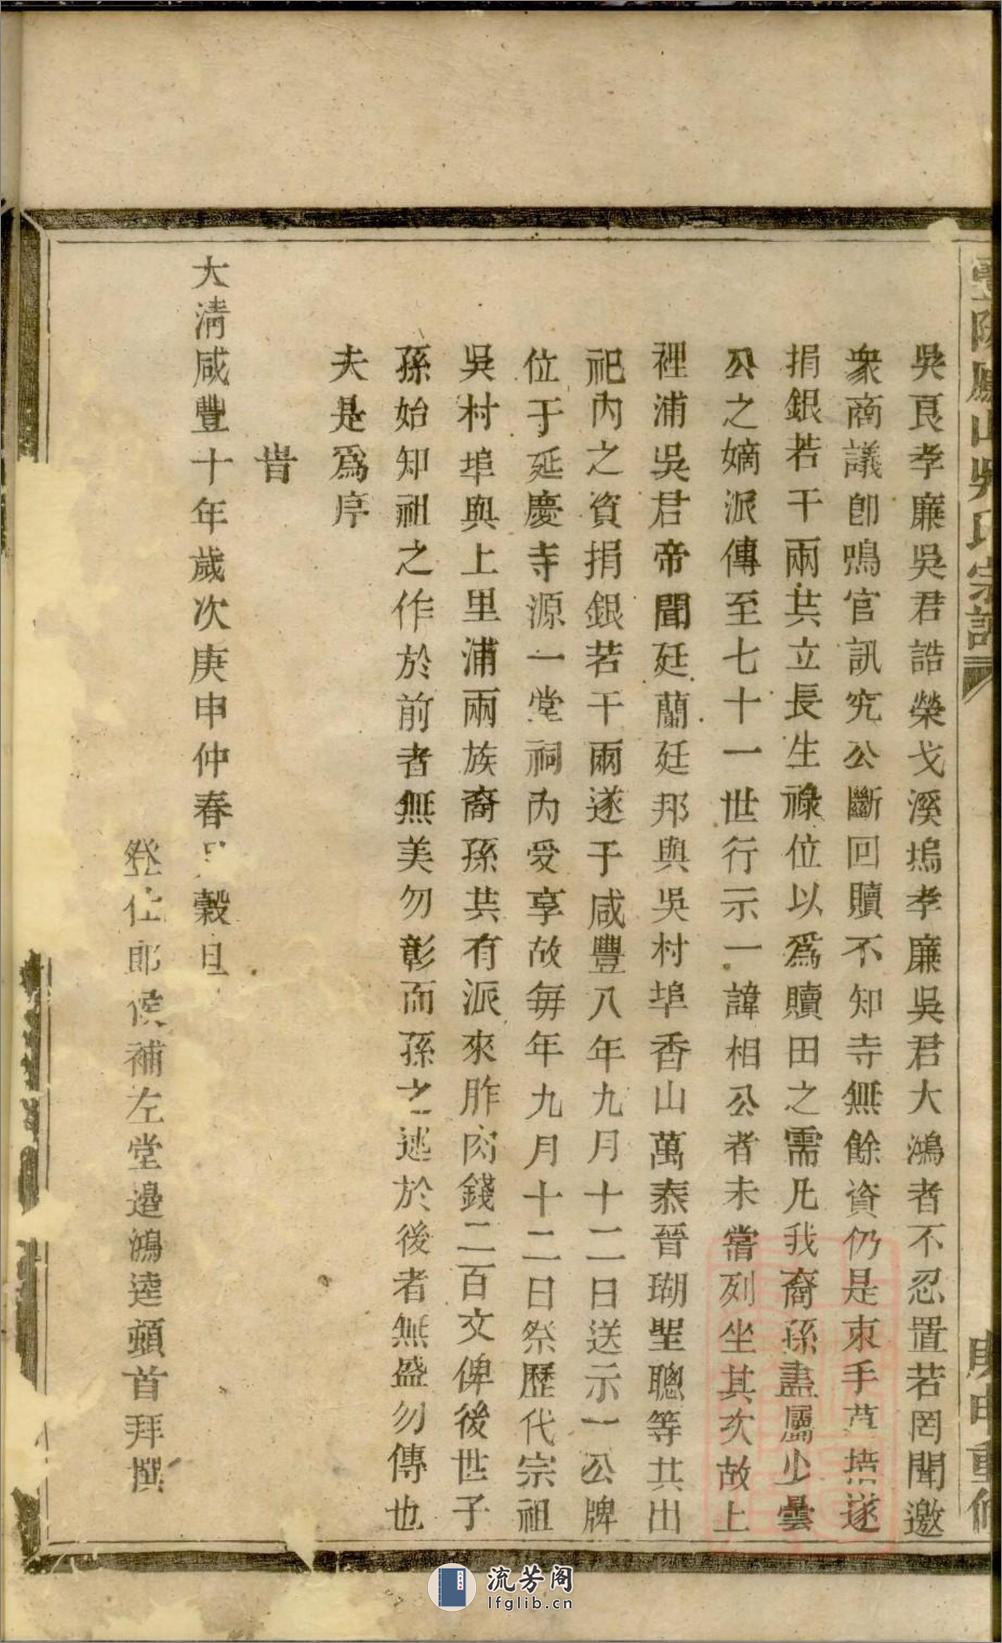 鳳山吳氏宗譜
庚申重修
吳良孝廉吳君誥榮戈溪塢孝廉吳君大鴻者不忍置若罔聞邀
衆商議卽鳴官訊究公斷回贖不知寺無餘資仍是束手莫措遂
捐銀若干兩共立長生祿位以爲贖田之需凡我裔孫盡屬少曇
公之嫡派傳至七十一世行示一諱相公者未嘗列坐其次故上
裡浦吳君帝聞廷蘭廷邦與吳村埠香山萬泰晉瑚聖聰等共出
祀內之資捐銀若干兩遂于咸豐八年九月十二日送示一公牌
位于延慶寺源一堂祠內受享故每年九月十二日祭歷代宗祖
吳村埠與上里浦兩族裔孫共有派來胙肉錢二百文俾後世子
孫始知祖之作於前者無美勿彰而孫之述於後者無盛勿傳也
夫是爲序
旹
大清咸豐十年歲次庚申仲春月穀旦
登仕郎候補左堂邊鴻逵頓首拜撰
流芳阁
lfglib.cn